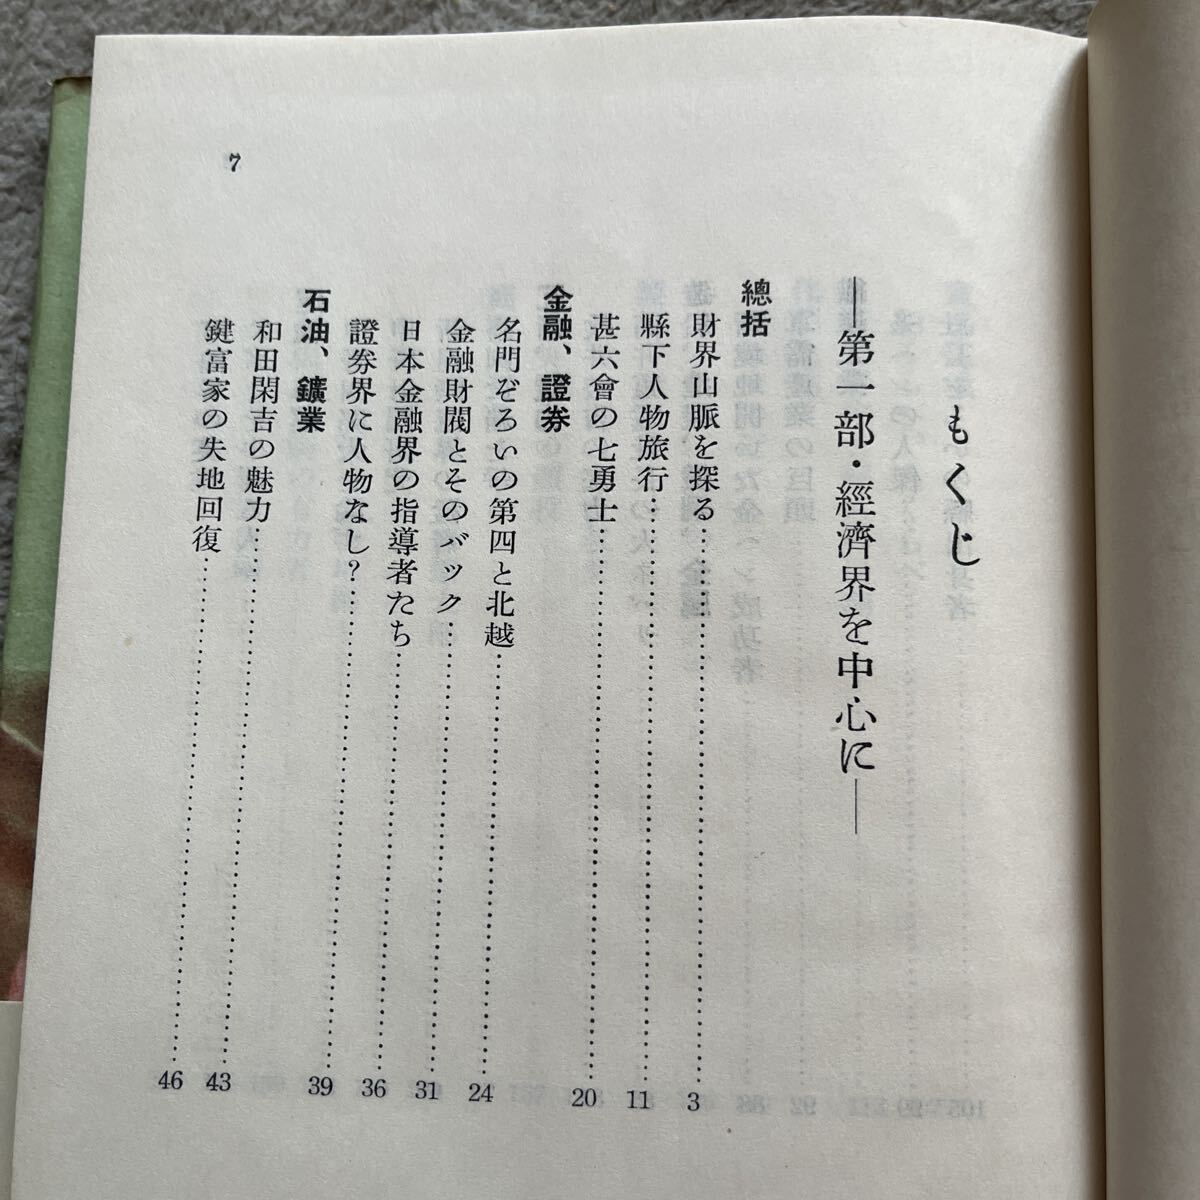 もくじ
―第一部・經濟界を中心に―
總括
財界山脈を探る……3
縣下人物旅行……11
甚六會の七勇士……20
金融、證券
名門ぞろいの第四と北越……24
金融財閥とそのバック……31
日本金融界の指導者たち……36
證券界に人物なし?……39
石油、鑛業
和田閑吉の魅力……43
鍵富家の失地回復……46
7